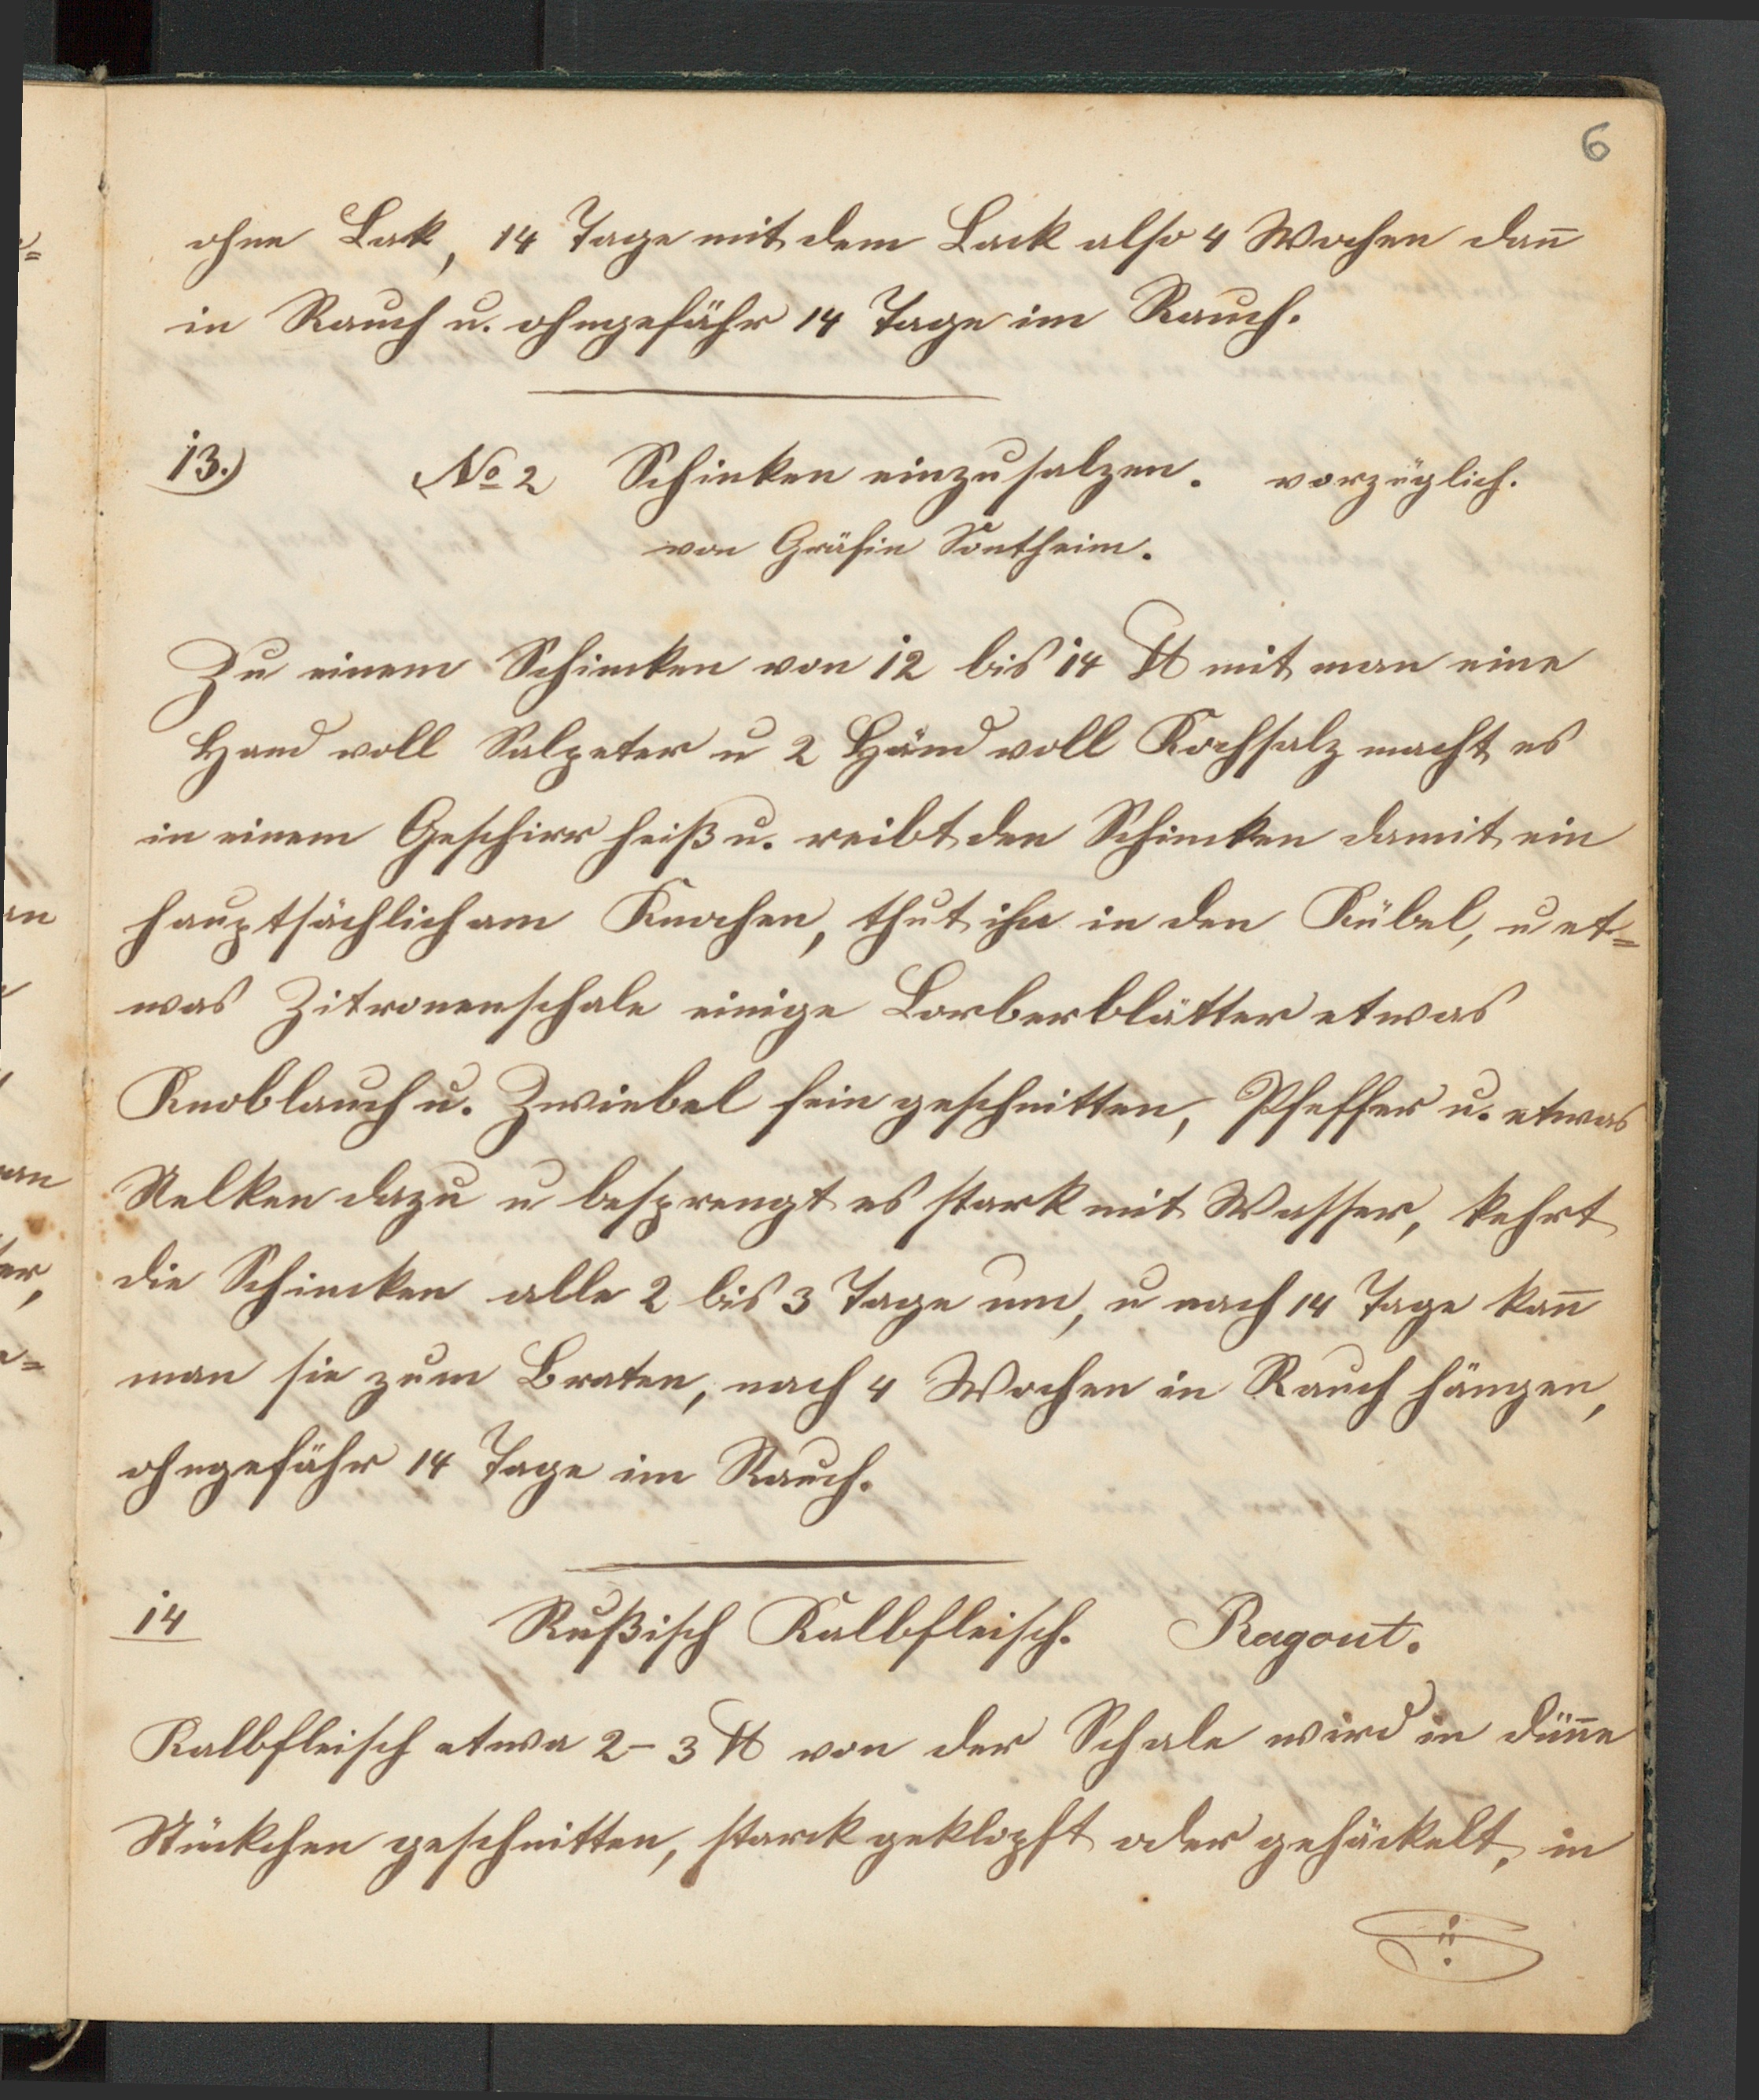 6
ohne Lak, 14 Tage mit dem Lack also 4 Wochen dan̄
in Rauch u. ohngefähr 14 Tage im Rauch.
13.) No 2 Schinken einzusalzen. vorzüglich.
von Gräfin Sontheim.
Zu einem Schincken von 12 bis 14 ℔ mit man eine
Hand voll Salpeter u 2 Händ voll Kochsalz macht es
in einem Geschirr heiß u. reibt den Schincken damit ein
hauptsächlich am Knochen, thut ihn in den Kübel, u et=
was Zitronenschale einige Lorberblätter etwas
Knoblauch u. Zwiebel fein geschnitten, Pfeffer u. etwas
Nelken dazu u besprengt es stark mit Wasser, kehrt
die Schincken alle 2 bis 3 Tage um, u nach 14 Tage kan̄
man sie zum Braten, nach 4 Wochen in Rauch hängen,
ohngefähr 14 Tage im Rauch.
14 Rußisch Kalbfleisch. Ragout.
Kalbfleisch etwa 2-3 ℔ von der Schale wird in dün̄e
Stückchen geschnitten, starck geklopft oder gehäckelt, in